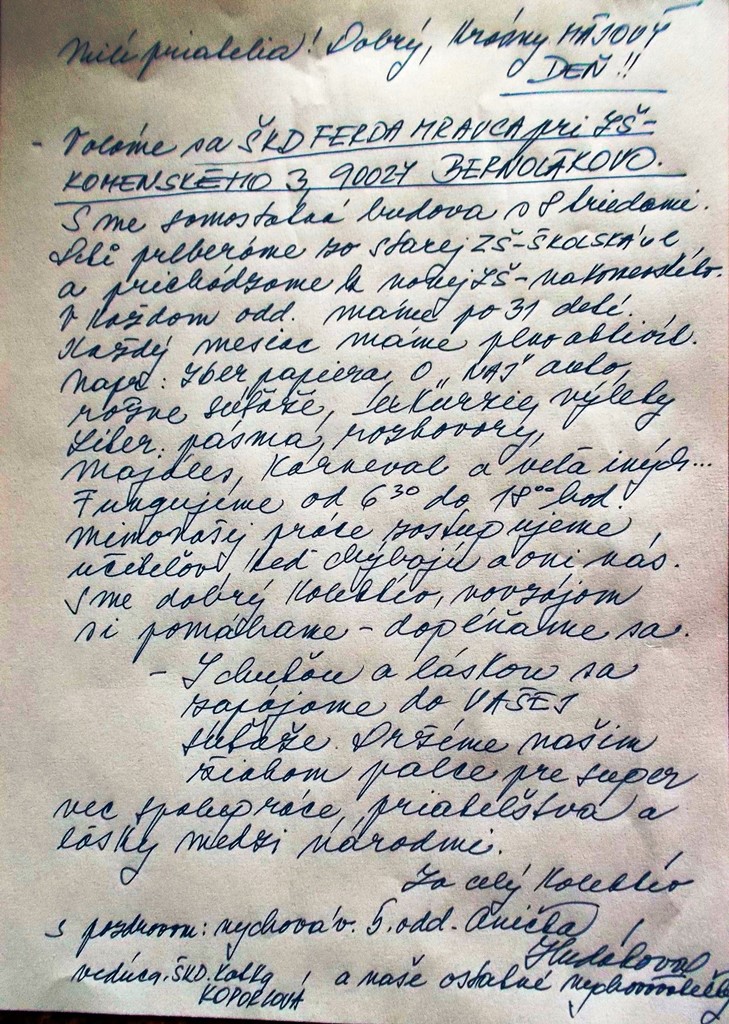 Milí priatelia! Dobrý, krásny MÁJOVÝ
DEŇ!!
- Voláme sa ŠKD FERDA MRAVCA pri ZŠ-
KOMENSKÉHO 3, 90027 BERNOLÁKOVO.
Sme samostatná budova s 8 triedami.
Deti preberáme zo starej ZŠ-ŠKOLSKÁ ul.
a prichádzame k novej ZŠ-na Komenského.
V každom odd. máme po 31 detí.
Každý mesiac máme plno aktivít.
Napr: Zber papiera, O "NAJ" auto,
rôzne súťaže, exkurzie, výlety
Liter. pásma, rozhovory,
Majáles, Karneval a veľa iných...
Fungujeme od 6³⁰ do 18⁰⁰ hod.
Mimo našej práce zastupujeme
učiteľov keď chýbajú a oni nás.
Sme dobrý kolektív, navzájom
si pomáhame - dopĺňame sa.
- S chuťou a láskou sa
zapájame do VAŠEJ
súťaže. Držíme našim
žiakom palce pre super
vec spolupráce, priateľstva a
lásky medzi národmi.
Za celý kolektív
s pozdravom: vychováv. 5. odd. Anička
Hudáková
vedúca ŠKD. Katka
KOPORCOVÁ
a naše ostatné